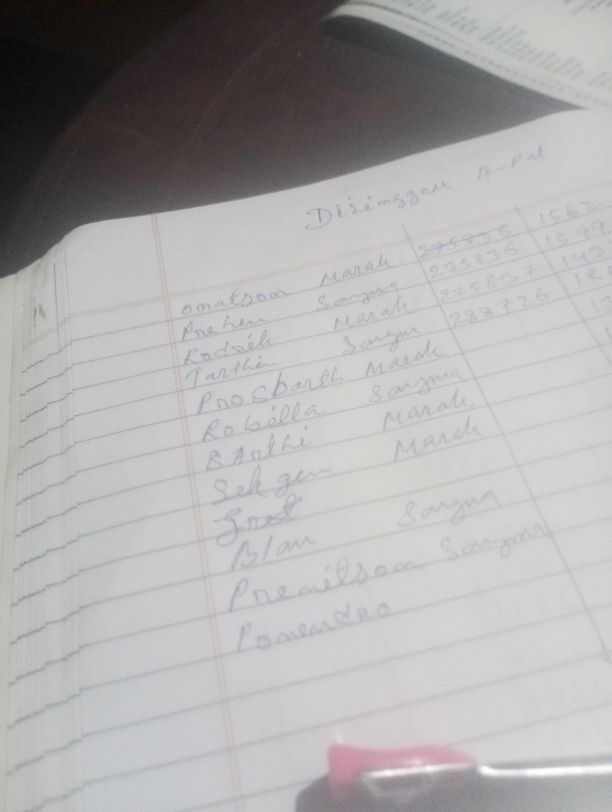 Disinggre A-Pal
omatson Marak 275835 1567
Prehen Sangma 275836 1599
Rodsik Marak 275837 143
Tarthin Sangm 288726
Prosbarth Marak
Robella Sangma
BArthi Marak
Sekgen Marak
Blan Sangma
Premilson Sangma
Ponendro